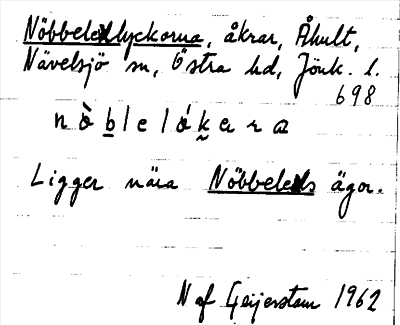 Nöbbelelyckorna, åkrar, Åhult,
Nävelsjö sn, Östra hd, Jönk. l.
698
Ligger nära Nöbbeles ägor.
N af Geijerstam 1962